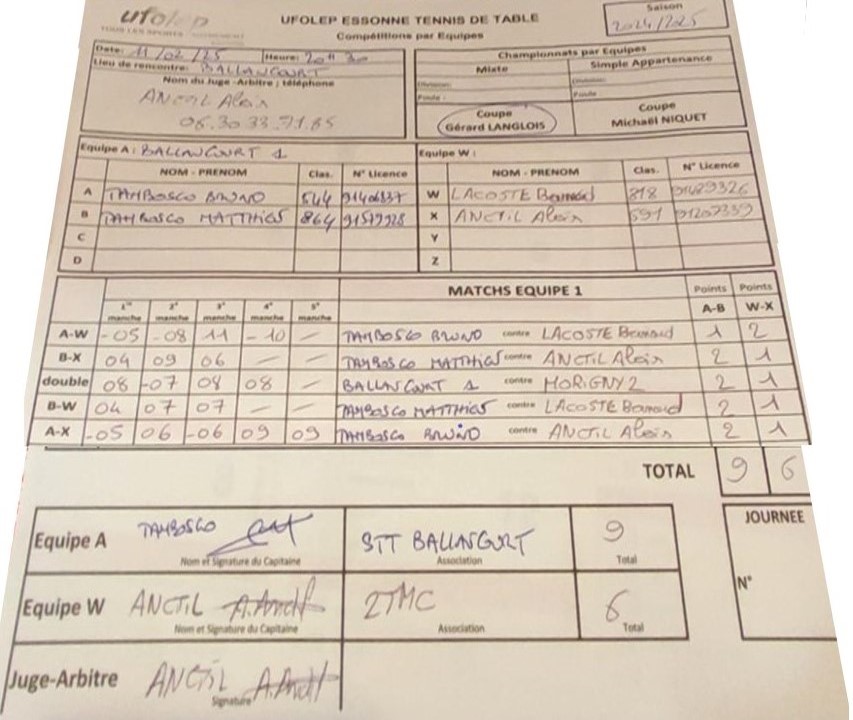 ufolep
UFOLEP ESSONNE TENNIS DE TABLE
Compétitions par Equipes
Saison
2024/2025
Date: 11/02/25 Heure: 20H30
Lieu de rencontre: BALLANCOURT
Nom du Juge-Arbitre ; téléphone
ANCTIL Alain
06.30 33.71.85
Championnats par Equipes
Mixte Simple Appartenance
Division: Division:
Poule : Poule :
Coupe
Gérard LANGLOIS
Coupe
Michaël NIQUET
Equipe A : BALLANCOURT 1 Equipe W :
NOM - PRENOM Clas. N° Licence NOM - PRENOM Clas. N° Licence
A TAMBOSCO BRUNO 544 W LACOSTE Bernard 818 91489326
B TAMBOSCO MATTHIAS 864 X ANCTIL Alain 591 91207339
C Y
D Z
MATCHS EQUIPE 1
Points Points
1re manche 2e manche 3e manche 4e manche 5e manche A-B W-X
A-W -05 -08 11 -10 — TAMBOSCO BRUNO contre LACOSTE Bernard 1 2
B-X 04 09 06 — — TAMBOSCO MATTHIAS contre ANCTIL Alain 2 1
double 08 -07 08 08 — BALLANCOURT 1 contre MORIGNY 2 2 1
B-W 04 07 07 — — TAMBOSCO MATTHIAS contre LACOSTE Bernard 2 1
A-X -05 06 -06 09 09 TAMBOSCO BRUNO contre ANCTIL Alain 2 1
TOTAL 9 6
JOURNEE
N°
Equipe A TAMBOSCO STT BALLANCOURT 9
Nom et Signature du Capitaine Association Total
Equipe W ANCTIL A.Anctil 2TMC 6
Nom et Signature du Capitaine Association Total
Juge-Arbitre ANCTIL A.Anctil
Signature